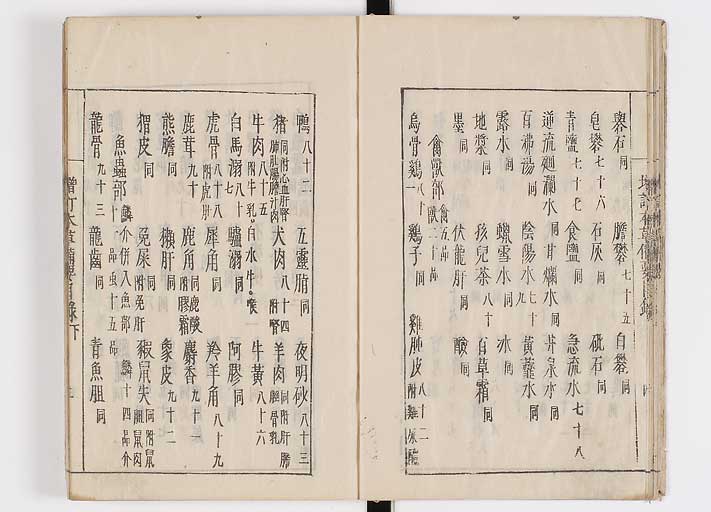 礬石同 膽礬七十五 白礬同
皂礬七十六 石灰同 砒石同
青鹽七十七 食鹽同 急流水七十八
逆流廻瀾水同 甘爛水同 井泉水同
百沸湯同 陰陽水七十九 黃虀水同
露水同 臘雪水同 冰同
地漿同 孩兒茶八十 百草霜同
墨同 伏龍肝同
禽獸部 禽五品 獸二十品
烏骨鷄八十一 鷄子同 雞肫皮八十二
鴨八十二 五靈脂同 夜明砂八十三
猪同附心血肝腎肺肚腸膽汁肉 犬肉八十四附腎 羊肉同附肝膽骨乳
牛肉八十五附牛乳白水牛喉 牛黃八十六
白馬溺八十七 驢溺同 阿膠同
虎骨八十八附虎肝 犀角同 羚羊角八十九
鹿茸九十 鹿角同附膠霜 麝香九十一
熊膽同 獺肝同 象皮九十二
猬皮同 兔屎附兔肝
魚蟲部 鱗
龍骨九十三 龍齒同 青魚胆同
增訂本草備要目錄下